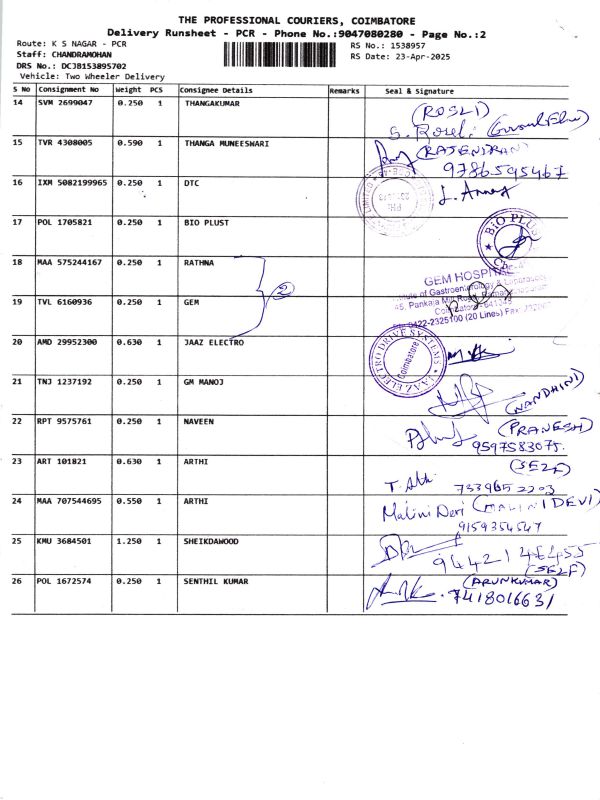 THE PROFESSIONAL COURIERS, COIMBATORE
Delivery Runsheet - PCR - Phone No.:9047080280 - Page No.:2
Route: K S NAGAR - PCR
Staff: CHANDRAMOHAN
DRS No.: DCJB153895702
Vehicle: Two Wheeler Delivery
RS No.: 1538957
RS Date: 23-Apr-2025
S No Consignment No Weight PCS Consignee Details Remarks Seal & Signature
14 SVM 2699047 0.250 1 THANGAKUMAR
(ROSLI)
S. Roseli
15 TVR 4308005 0.590 1 THANGA MUNEESWARI
(RAJENDRAN)
9786595467
16 IXM 5082199965 0.250 1 DTC
17 POL 1705821 0.250 1 BIO PLUST
BIO PLUS
18 MAA 575244167 0.250 1 RATHNA
2
GEM HOSPITAL
Institute of Gastroenterology &
45, Pankaja Mill Road,
Coimbatore - 641045
0422-2325100 (20 Lines) Fax:
19 TVL 6160936 0.250 1 GEM
20 AMD 29952300 0.630 1 JAAZ ELECTRO
JAAZ ELECTRO DRIVE SYSTEMS
Coimbatore
21 TNJ 1237192 0.250 1 GM MANOJ
(NANDHINI)
22 RPT 9575761 0.250 1 NAVEEN
(PRANESH)
9597583075.
23 ART 101821 0.630 1 ARTHI
(SELF)
7339652203
24 MAA 707544695 0.550 1 ARTHI
Malini Devi (MALINI DEVI)
9159354547
25 KMU 3684501 1.250 1 SHEIKDAWOOD
(SELF)
26 POL 1672574 0.250 1 SENTHIL KUMAR
(ARUNKUMAR)
7418016631